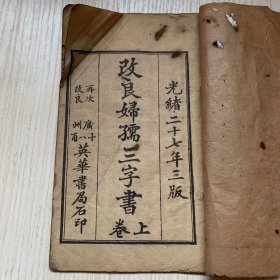 光緒二十七年三版
改良婦孺三字書
上卷
再次改良
廣州十八甫
英華書局石印